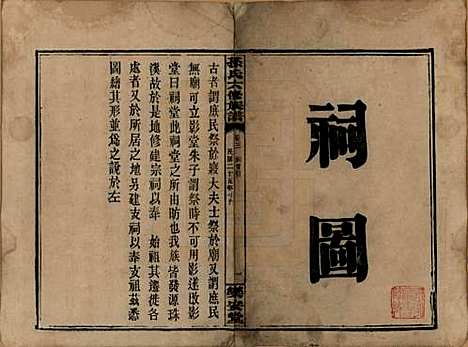 祠圖
孫氏六修族譜
卷三
映雪堂
古者謂庶民祭於寢大夫士祭於廟又謂庶民
無廟可立影堂朱子謂祭時不可用影遂改影
堂曰祠堂此祠堂之所由昉也我族皆發源珠
溪故於是地修建宗祠以奉 始祖其遷徙各
處者又於所居之地另建支祠以奉支祖茲悉
圖繪其形並為之說於左